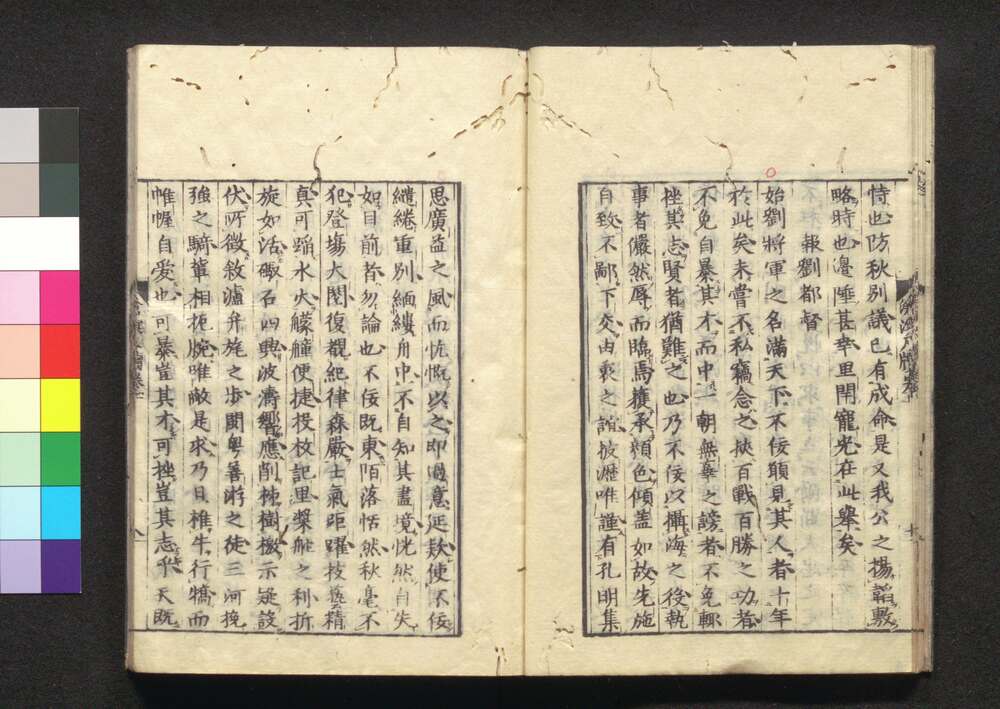 恃也防秋別議已有成命是又我公之揚韜敷
略時也邊陲甚幸里閈寵光在此舉矣
報劉都督
始劉將軍之名滿天下不佞願見其人者十年
於此矣未嘗不私竊念之挾百戰百勝之功者
不免自暴其才而中一朝無辜之謗者不免輒
挫其志賢者猶難之也乃不佞以攝海之後執
事者儼然辱而臨焉獲承顏色傾蓋如故先施
自致不鄙下交由衷之誼披瀝唯謹有孔明集
思廣益之風而忼慨以之即過意延欵使不佞
繾綣重別緬縷舟中不自知其盡境恍然自失
如目前者勿論也不佞既東陌落恬然秋毫不
犯登塲大閱復覩紀律森嚴士氣距躍技藝精
真可蹈水火艨艟便捷投枚記里槳舵之利折
旋如活礮石四興波濤響應削棟樹檄示疑設
伏所徵敘瀘弁旄之步閩粤善游之徒三河挽
強之騎輩相扼腕唯敵是求乃日椎牛行犒而
帷幄自愛也可暴豈其才可挫豈其志乎天既